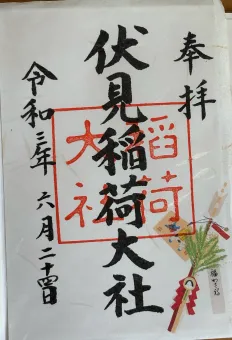 奉拝
伏見稲荷大社
稲荷
大社
令和三年六月二十四日